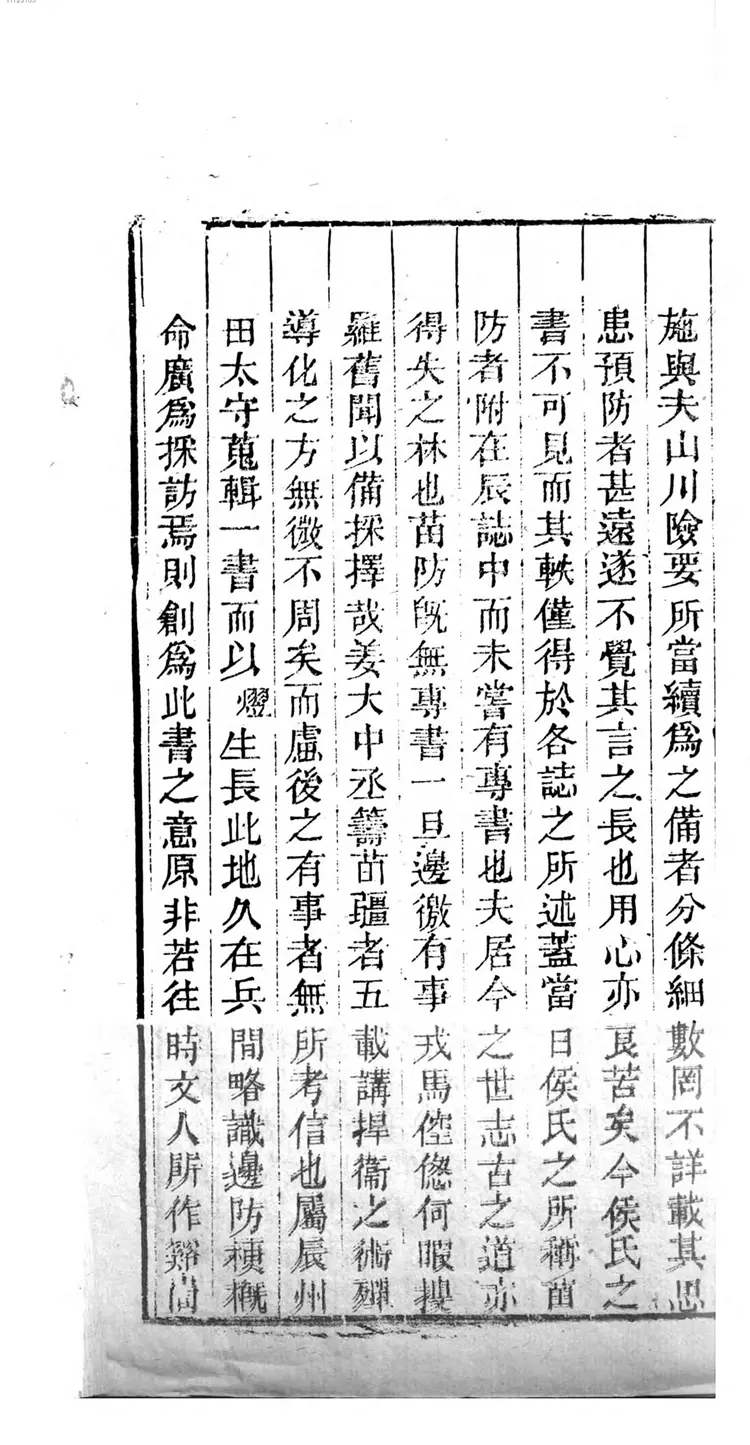 施與夫山川險要所當續爲之備者分條細數罔不詳載其思
患預防者甚遠遂不覺其言之長也用心亦良苦矣今侯氏之
書不可見而其軼僅得於各誌之所述蓋當日侯氏之所稱苗
防者附在辰誌中而未嘗有專書也夫居今之世志古之道亦
得失之林也苗防旣無專書一旦邊徼有事戎馬倥傯何暇搜
羅舊聞以備採擇哉姜大中丞籌苗疆者五載講捍衞之術殫
導化之方無微不周矣而慮後之有事者無所考信也屬辰州
田太守蒐輯一書而以熤生長此地久在兵間略識邊防梗槪
命廣爲採訪焉則創爲此書之意原非若往時文人所作谿